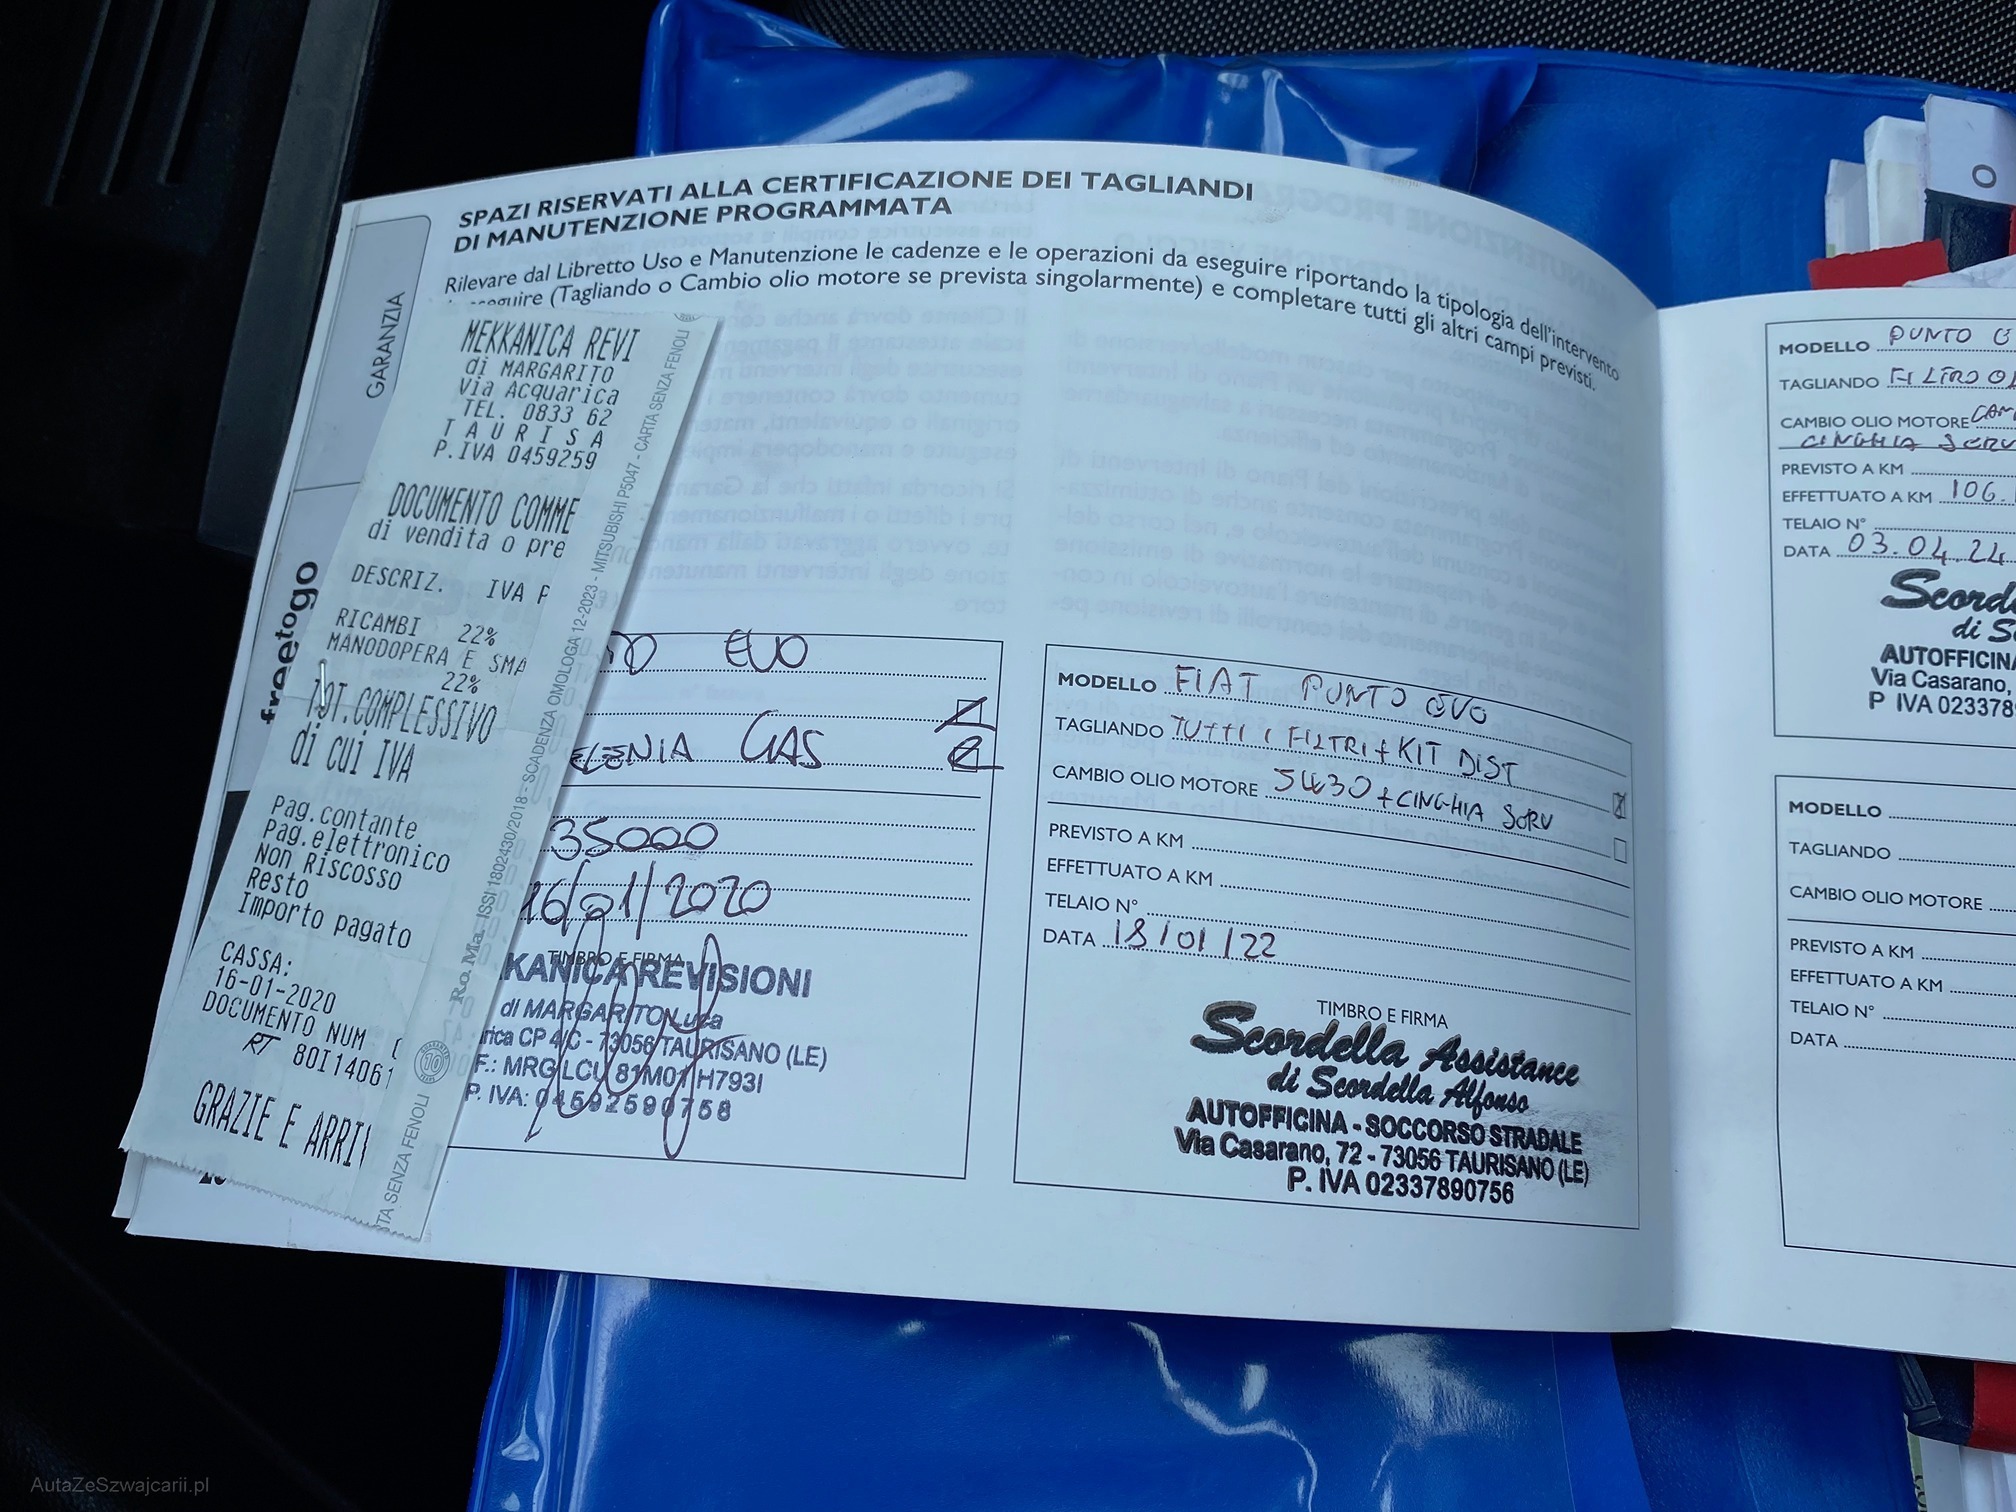 SPAZI RISERVATI ALLA CERTIFICAZIONE DEI TAGLIANDI
DI MANUTENZIONE PROGRAMMATA
Rilevare dal Libretto Uso e Manutenzione le cadenze e le operazioni da eseguire riportando la tipologia dell'intervento
(Tagliando o Cambio olio motore se prevista singolarmente) e completare tutti gli altri campi previsti.
GARANZIA
freetogo
MEKKANICA REVI
di MARGARITO
Via Acquarica
TEL. 0833 62
T A U R I S A
P.IVA 0459259
DOCUMENTO COMME
di vendita o pre
DESCRIZ. IVA P
RICAMBI 22%
MANODOPERA E SMA
22%
TOT.COMPLESSIVO
di cui IVA
Pag.contante
Pag.elettronico
Non Riscosso
Resto
Importo pagato
CASSA:
16-01-2020
DOCUMENTO NUM
RT 80I14061
GRAZIE E ARRI
Ro. Ma. ISSI 1802430/2018 - SCADENZA OMOLOGA 12-2023 - MITSUBISHI P5047 - CARTA SENZA FENOLI
TA SENZA FENOLI
EVO
ELENIA GAS
35000
16/01/2020
TIMBRO E FIRMA
KANICA REVISIONI
di MARGARITO Luca
rica CP 4/C - 73056 TAURISANO (LE)
F.: MRG LCU 81M01 H793I
P. IVA: 04592590758
MODELLO FIAT PUNTO EVO
TAGLIANDO TUTTI I FILTRI + KIT DIST
CAMBIO OLIO MOTORE 5W30 + CINGHIA SERV
PREVISTO A KM
EFFETTUATO A KM
TELAIO N°
DATA 18/01/22
TIMBRO E FIRMA
Scordella Assistance
di Scordella Alfonso
AUTOFFICINA - SOCCORSO STRADALE
Via Casarano, 72 - 73056 TAURISANO (LE)
P. IVA 02337890756
MODELLO PUNTO E
TAGLIANDO FILTRO OL
CAMBIO OLIO MOTORE CAM
CINGHIA SERV
PREVISTO A KM
EFFETTUATO A KM 106.
TELAIO N°
DATA 03.04.24
Scorde
di S
AUTOFFICINA
Via Casarano,
P IVA 023378
MODELLO
TAGLIANDO
CAMBIO OLIO MOTORE
PREVISTO A KM
EFFETTUATO A KM
TELAIO N°
DATA
AutaZeSzwajcarii.pl